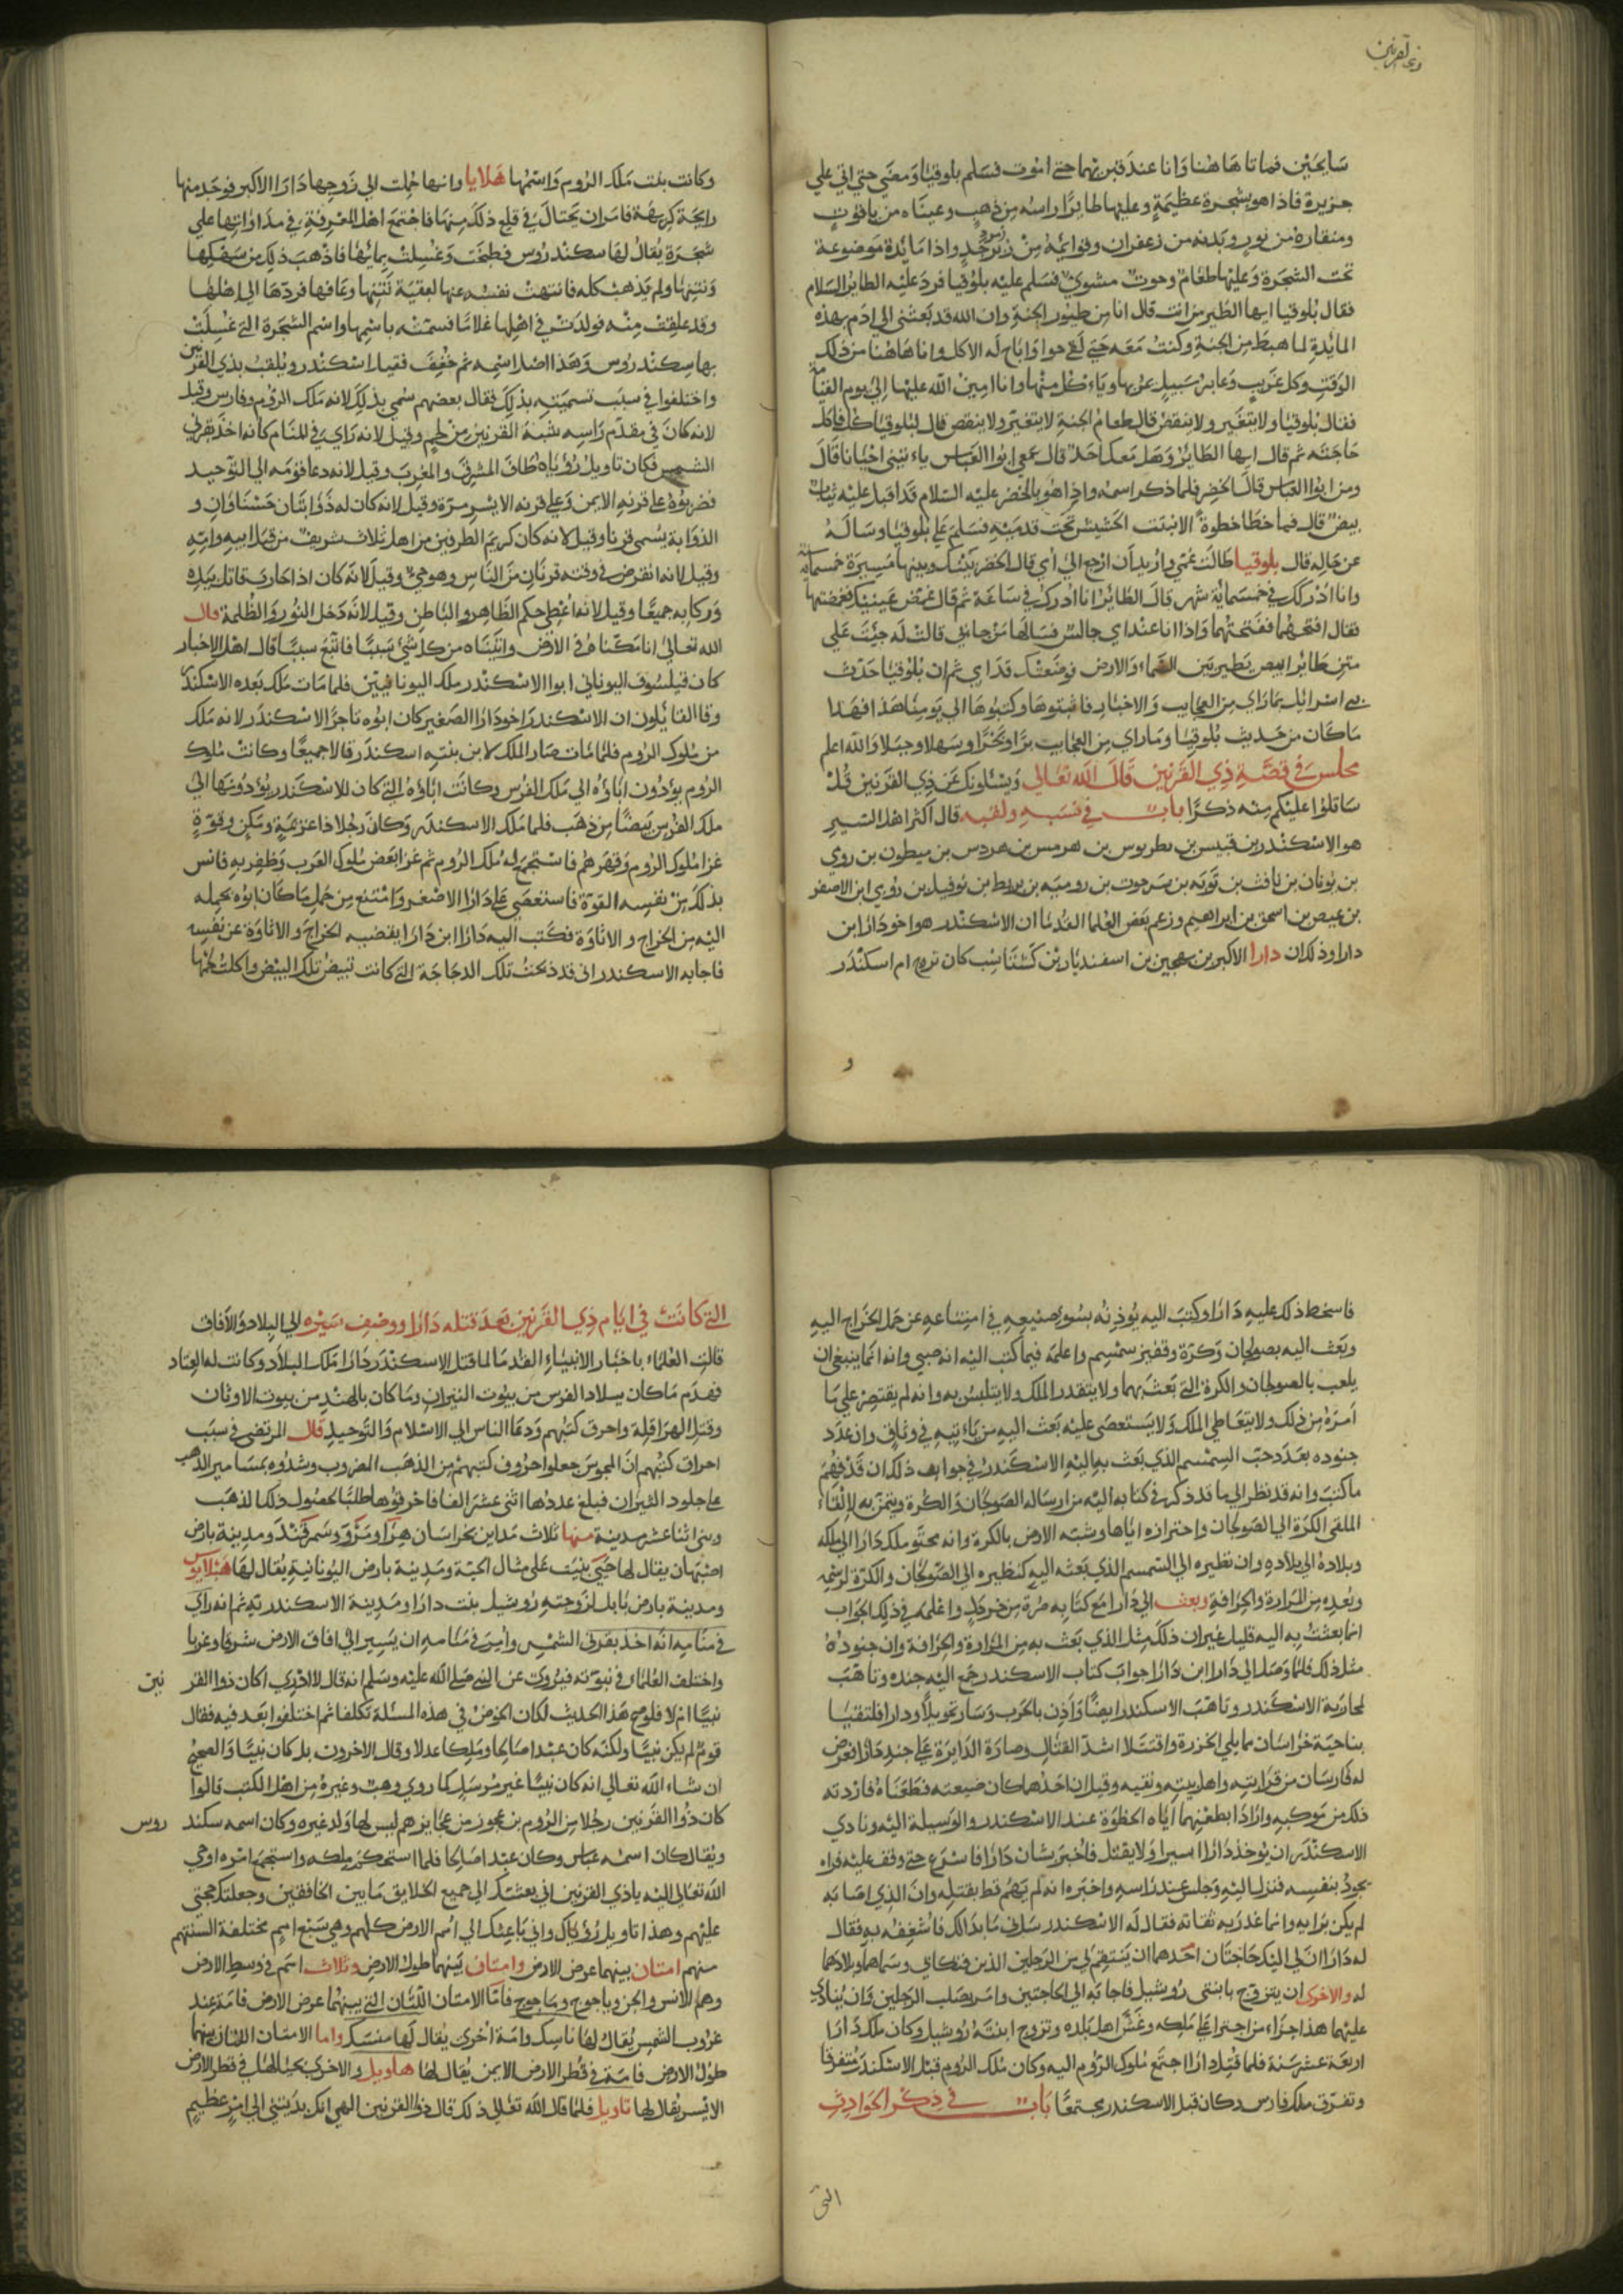 ذي القرنين
سايحين فماتا هاهنا وانا عند قبريهما حتى اموت فسلم بلوقيا ومضى حتى اتى على
جزيرة فاذا هو بشجرة عظيمة وعليها طايرا راسه من ذهب وعيناه من ياقوت
ومنقاره من نور وبدنه من زعفران وقوايمه من زبرجد واذا مايدة موضوعة
تحت الشجرة وعليها طعام وحوت مشوي فسلم عليه بلوقيا فرد عليه الطاير السلام
فقال بلوقيا ايها الطير من انت قال انا من طيور الجنة وان الله قد بعثني الى ادم بهذه
المائدة لما هبط من الجنة وكنت معه حتى لقي حوا واباح له الاكل وانا هاهنا من ذلك
الوقت وكل غريب وعابر سبيل يمر بها وياءكل منها وانا امين الله عليها الى يوم القيامة
فقال بلوقيا ولا يتغير ولا ينقص قال طعام الجنة لا يتغير ولا ينقص قال لبلوقيا كل فاكل
حاجته ثم قال ايها الطاير وهل معك احد قال معي ابوا العباس ياءتيني احيانا قال
ومن ابوا العباس قال الخضر فلما ذكر اسمه واذا هو بالخضر عليه السلام قد اقبل عليه ثياب
بيض قال فما خطا خطوة الا نبت الحشيش تحت قدميه فسلم على بلوقيا وساله
عن حاله قال بلوقيا طالت غيبتي واريد ان ارجع الى امي قال الخضر بينك وبينها مسيرة خمسماية سنة
وانا اردك في خمسماية شهر قال الطاير انا اردك في ساعة ثم قال غمض عينيك فغمضتها
فقال افتحهما ففتحتهما واذا انا عند امي جالس فسالها من جابني قالت له جيت على
متن طاير ابيض يطير بين السماء والارض فوضعتك قدامي ثم ان بلوقيا حدث
بني اسرائيل بما راي من العجايب والاخبار فاثبتوها وكتبوها الى يومنا هذا فهذا
ما كان من حديث بلوقيا وما راي من العجايب برا وبحرا وسهلا وجبلا والله اعلم
مجلس في قصة ذي القرنين قال الله تعالى ويسئلونك عن ذي القرنين قل
ساتلوا عليكم منه ذكرا باب في نسبه ولقبه قال اكثر اهل السير
هو الاسكندر بن قيبس بن بطريوس بن هرمس بن هردس بن ميطون بن روي
بن يونان بن نافث بن توبه بن سرجوت بن روميه بن بربط بن نوفيل بن روي ابن الاصفر
بن عيص بن اسحق بن ابراهيم وزعم بعض العلما القدما ان الاسكندر هو اخو دارا بن
دارا وذلك ان دارا الاكبر بن بهمن بن اسفنديار بن كشتاسب كان تزوج ام اسكندر
وكانت بنت ملك الروم واسمها هلايا وانها حملت الى زوجها دارا الاكبر فوجد منها
رايحة كريهة فامر ان يحتال في قلع ذلك منها فاجتمع اهل المعرفة في مداواتها على
شجرة يقال لها سكندروس فطبخت وغسلت بمايها فاذهب ذلك من سهكها
ونتنها ولم يذهب كله فانتهت نفسه عنها لبقية نتنها وعافها فردها الى اهلها
وقد علقت منه فولدت في اهلها غلاما فسمته باسمها واسم الشجرة التي غسلت
بها سكندروس وهذا اصل اسمه ثم خفف فقيل اسكندر ويلقب بذي القرنين
واختلفوا في سبب تسميته بذلك فقال بعضهم سمي بذلك لانه ملك الروم وفارس وقيل
لانه كان في مقدم راسه شبه القرنين من لحم وقيل لانه راي في المنام كانه اخذ بقرني
الشمس فكان تاويل رؤياه طاف المشرق والمغرب وقيل لانه دعا قومه الى التوحيد
فضربوه على قرنه الايمن وعلى قرنه الايسر مرة وقيل لانه كان له ذؤابتان حسناوان و
الذوابة يسمى قرنا وقيل لانه كان كريم الطرفين من اهل ثلاث شريف من قبل ابيه وامه
وقيل لانه انقرض في وقته قرنان من الناس وهو حي وقيل لانه كان اذا حارب قاتل بيده
وركابه جميعا وقيل لانه اعطي حكم الظاهر والباطن وقيل لانه دخل النور والظلمة قال
الله تعالى انا مكنا له في الارض واتيناه من كل شئ سببا فاتبع سببا قال اهل الاخبار
كان فيلسوف اليوناني ابوا الاسكندر ملك اليونانيين فلما مات ملك بعده الاسكندر
وقا القايلون ان الاسكندر اخو دارا الصغير كان ابوه تاجر الاسكندر لانه ملك
من ملوك الروم فلما مات صار الملك لابن بنته اسكندر قالا جميعا وكانت ملوك
الروم يؤدون اتاوة الى ملك الفرس وكانت اتاوة التي كان للاسكندر يؤدونها الى
ملك الفرس بيضا من ذهب فلما ملك الاسكندر وكان رجلا ذا عزيمة ومكن وقوة
غزا ملوك الروم وقهرهم فاستجمع له ملك الروم ثم غزا بعض ملوك العرب وظفر به فانس
بذلك من نفسه القوة فاستعصى على دارا الاصغر وامتنع من حمل ما كان ابوه يحمله
اليه من الخراج والاتاوة فكتب اليه دارا ابن دارا يقتضيه الخراج والاتاوة عن نفسه
فاجابه الاسكندر اني قد ذبحت تلك الدجاجة التي كانت تبيض تلك البيض واكلت لحمها
فاسخط ذلك عليه دارا وكتب اليه يوذنه بسوء صنيعه في امتناعه عن حمل الخراج اليه
وبعث اليه بصولجان وكرة وقفيز سمسم واعلمه فيما كتب اليه انه صبي وانه انما ينبغي ان
يلعب بالصولجان والكرة التي بعث بهما ولا يتقدر الملك ولا يتلبس به وانه لم يقتصر على ما
امره من ذلك ولا يتعاطى الملك ولا يستعصى عليه بعث اليه من ياءتيه في وثاق وان عدد
جنوده بعدد حب السمسم الذي بعث به اليه الاسكندر في جوابه ذلك ان قد فهم
ما كتب وانه قد نظر الى ما قد ذكر في كتابه اليه من ارساله الصولجان والكرة وتيمن به لالقاء
الملقى الكرة الى الصولجان واحترازه اياها وشبه الارض بالكرة وانه محتو ملك دارا الى ملكه
وبلاده الى بلاده وان نظيره الى السمسم الذي بعثه اليه كنظيره الى الصولجان والكرة لدسمه
وبعده من المرارة والحرافة وبعث الى دارا مع كتابه صرة من خردل واعلمه في ذلك الجواب
انما بعثت به اليه قليل غير ان ذلك مثل الذي بعث به من المرارة والحرافة وان جنوده
مثل ذلك فلما وصل الى دارا ابن دارا جواب كتاب الاسكندر جمع اليه جنده وتاهب
لمحاربة الاسكندر وتاهب الاسكندر ايضا واذن بالحرب وسار نحو بلاد دارا فالتقيا
بناحية خراسان مما يلي الخزر واقتتلا اشد القتال وصارة الدايرة على جند دارا فعرض
له فارسان من قرابته واهل بيته وثقيه وقيل ان احدهما كان ضيعته فطعناه فارديه
ذلك من موكبه وارادا بطعنهما اياه الحظوة عند الاسكندر والوسيلة اليه ونادي
الاسكندر ان يوخذ دارا اسيرا ولا يقتل فاخبر بشان دارا فاسرع حتى وقف عليه فراه
يجود بنفسه فنزل اليه وجلس عند راسه واخبره انه لم يهم قط بقتله وان الذي اصابه
لم يكن برايه وانما غدر به ثقاته فقال له الاسكندر سلني ما بدالك فاسعفه به فقال
له دارا ان لي اليك حاجتان احدهما ان ينتقم لي من الرجلين الذين فتكاني وسماهما وبلادهما
له والاخرى ان يتزوج بابنتي روشيل فاجابه الى الحاجتين وامر بصلب الرجلين وان ينادي
عليهما هذا جزاء من اجترا على ملكه وغش اهل بلده وتزوج ابنته روشيل وكان ملك دارا
اربعة عشر سنة فلما قتل دارا اجتمع ملوك الروم اليه وكان ملك الروم قبل الاسكندر متفرقا
وتفرق ملك فارس وكان قبل الاسكندر مجتمعا باب في ذكر الحوادث
التي
التي كانت في ايام ذي القرنين بعد قتله دارا ووصف سيره الى البلاد والافاق
قالت العلماء باخبار الانبياء القدما لما قتل الاسكندر دارا ملك البلاد وكانت له العباد
فهدم ما كان ببلاد الفرس من بيوت النيران وما كان بالهند من بيوت الاوثان
وقتل الهراقلة واحرق كتبهم ودعا الناس الى الاسلام والتوحيد قال المرتضى في سبب
احراق كتبهم ان المجوس جعلوا حروف كتبهم من الذهب المضروب وشدوه بمسامير الذهب
على جلود الثيران فبلغ عددها اثني عشر الفا فاحرقوها طلبا لحصول ذلك الذهب
وبنى اثنا عشر مدينة منها ثلاث مداين بخراسان هرا ومرو وسمرقند ومدينة بارض
اصبهان يقال لها جي بنيت على مثال الحية ومدينة بارض اليونانية يقال لها هيلابوس
ومدينة بارض بابل لزوجته روشيل بنت دارا ومدينة الاسكندرية ثم انه راي
في منامه انه اخذ بقرني الشمس وامر في منامه ان يسير الى افاق الارض شرقا وغربا
واختلف العلماء في نبوته فيروي عن النبي صلى الله عليه وسلم انه قال لا ادري اكان ذوا القرنين
نبيا ام لا فلو صح هذا الحديث لكان الخوض في هذه المسئلة تكلفا ثم اختلفوا بعد فيه فقال
قوم لم يكن نبيا ولكنه كان عبدا صالحا وملكا عدلا وقال الاخرون بل كان نبيا والصحيح
ان شاء الله تعالى انه كان نبيا غير مرسل كما روي وهب وغيره من اهل الكتب قالوا
كان ذوا القرنين رجلا من الروم بن عجوز من عجايزهم ليس لها ولد غيره وكان اسمه سكندروس
ويقال كان اسمه عباس وكان عبدا صالحا فلما استحكم ملكه واستجمع امره اوحي
الله تعالى اليه ياذي القرنين اني بعثتك الى جميع الخلايق ما بين الخافقين وجعلتك حجتي
عليهم وهذا تاويل رؤياك واني باعثك الى امم الارض كلهم وهي سبع امم مختلفة السنتهم
منهم امتان بينهما عرض الارض وامتان بينهما طول الارض وثلاث امم في وسط الارض
وهم الانس والجن وياجوج وماجوج فاما الامتان اللتان التي بينهما عرض الارض فامة عند
غروب الشمس يقال لها ناسك وامة اخرى يقال لها منسك واما الامتان اللتان بينهما
طول الارض فامة في قطر الارض الايمن يقال لها هاويل والاخرى بحيالها في قطر الارض
الايسر يقال لها تاويل فلما قال الله تعالى ذلك قال ذوا القرنين الهي انك بدتني الى امر عظيم